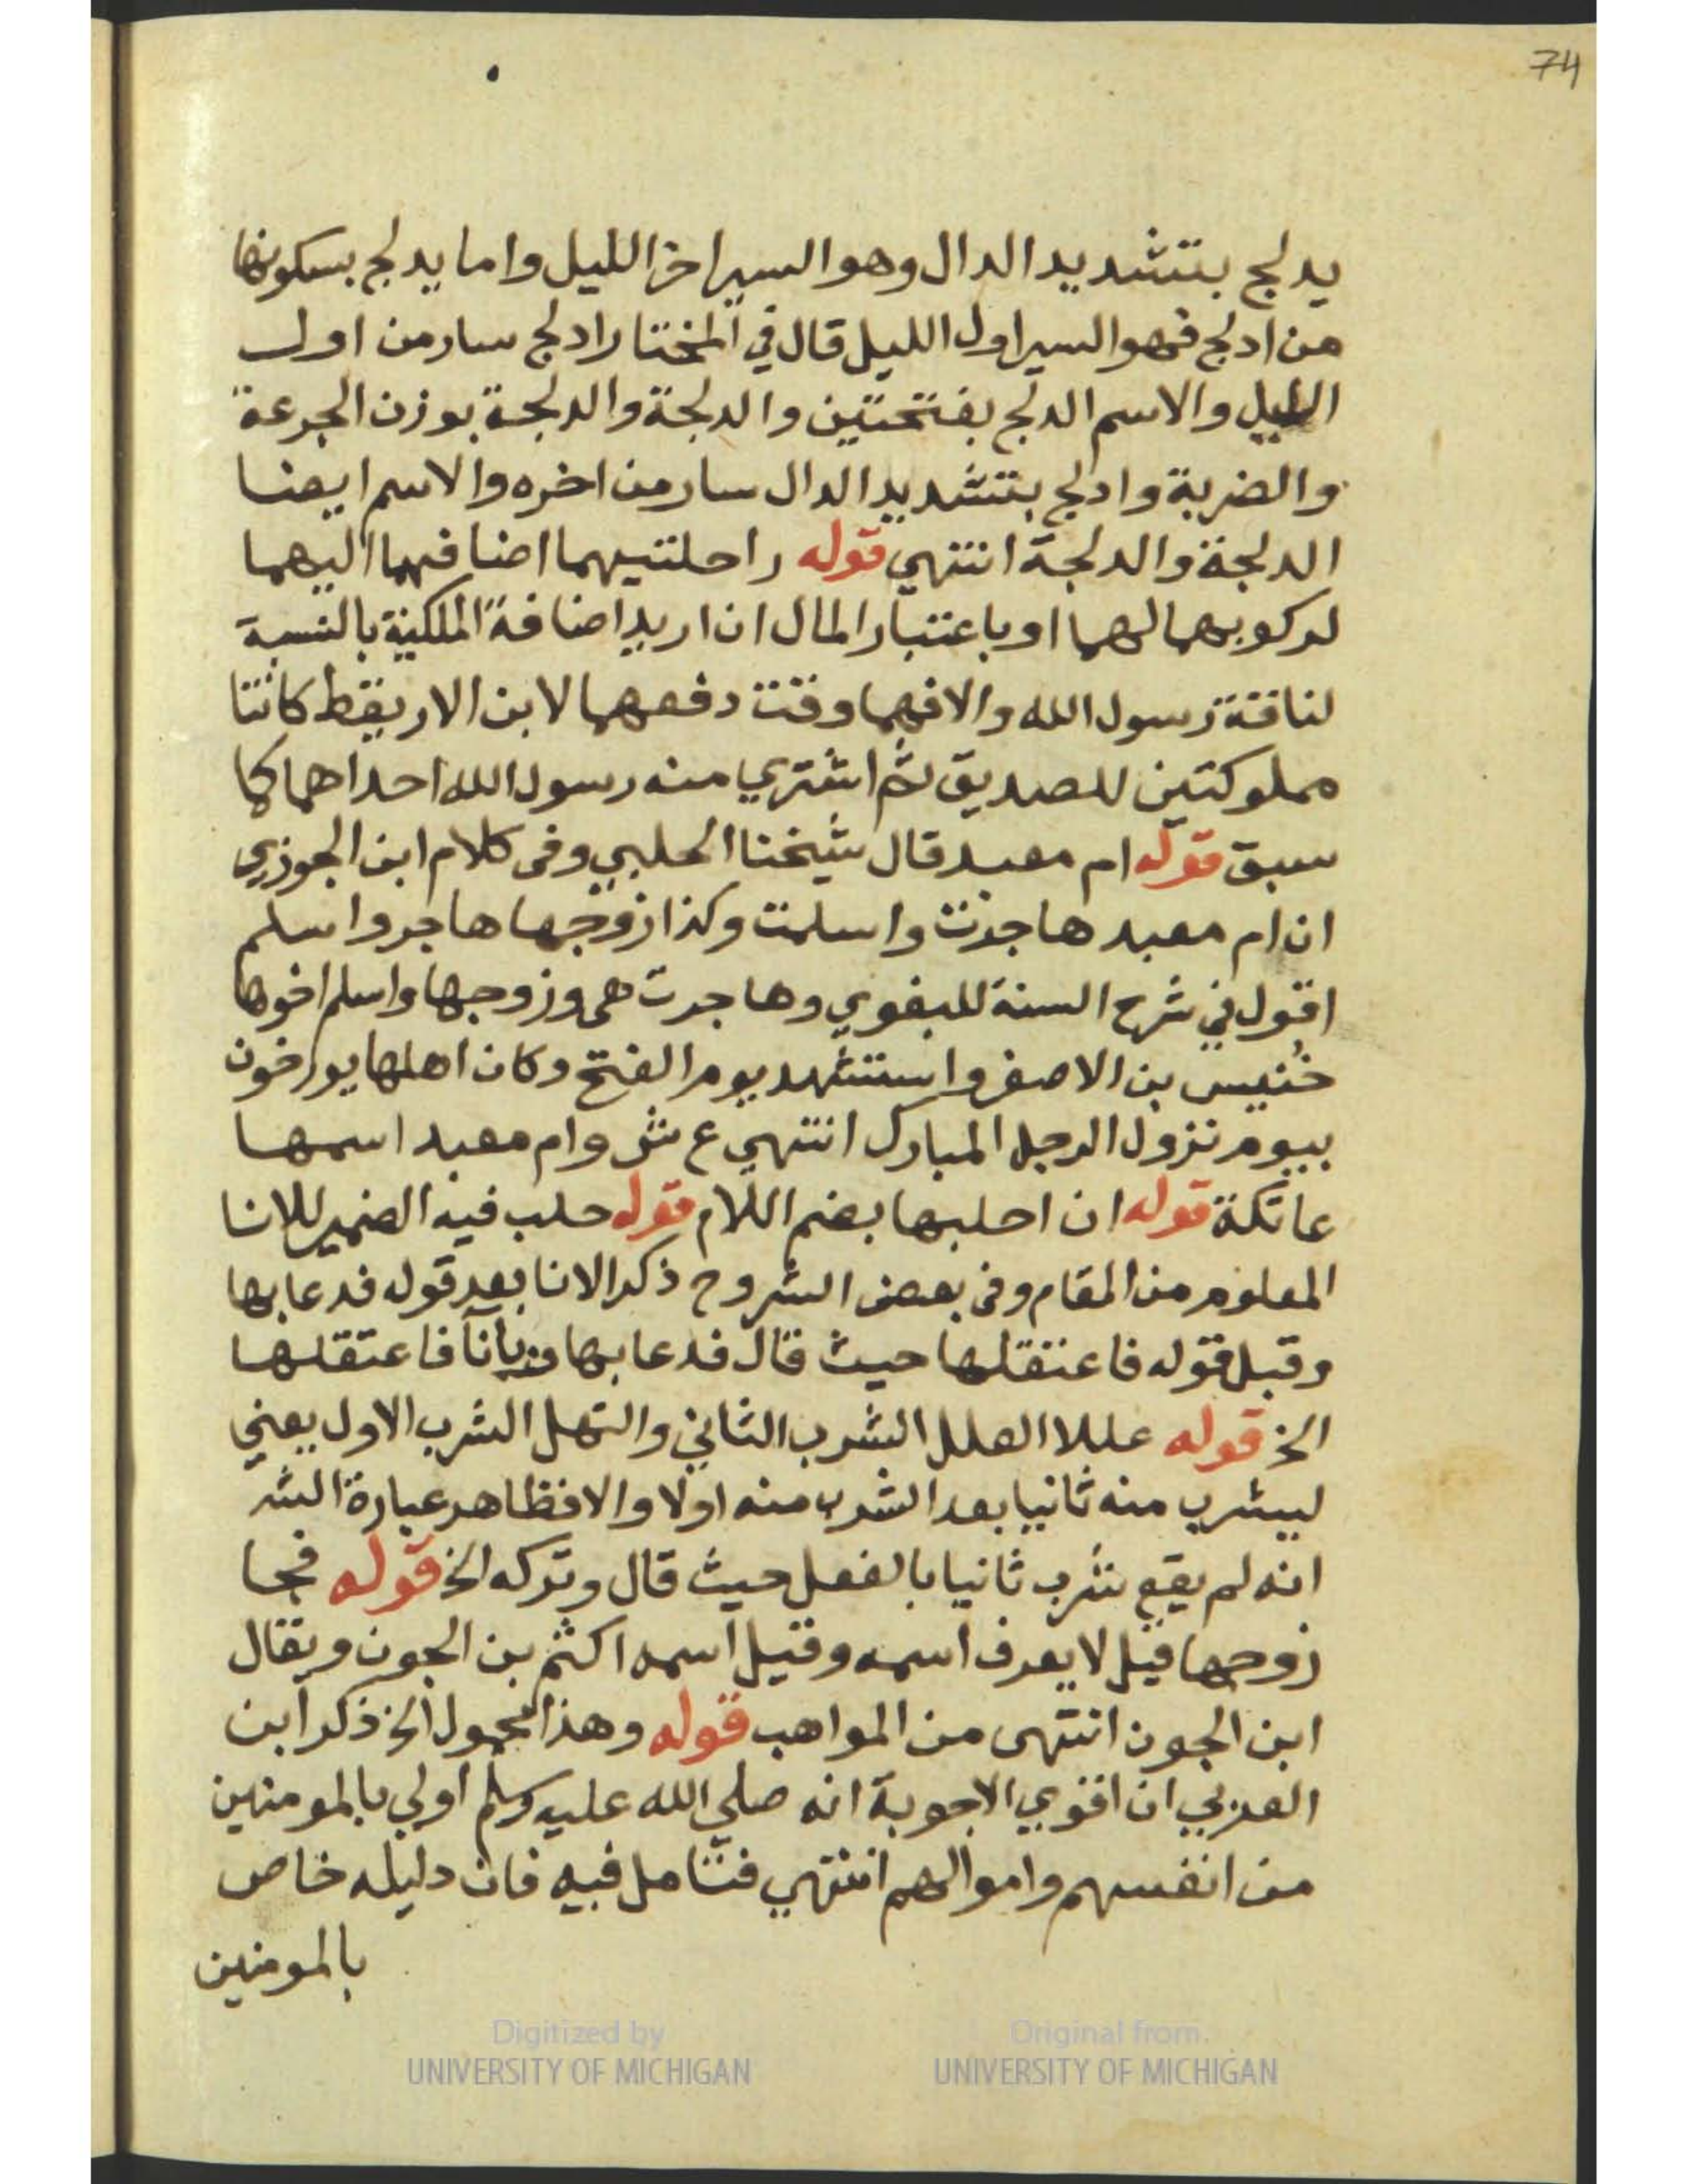 74
يدلج بتشديد الدال وهو السير اخر الليل واما يدلج بسكونها
من ادلج فهو السير اول الليل قال في المختار ادلج سار من اول
الليل والاسم الدلج بفتحتين والدلجة والدلجة بوزن الجرعة
والضربة وادلج بتشديد الدال سار من اخره والاسم ايضا
الدلجة والدلجة انتهي قوله راحلتيهما اضافهما اليهما
لركوبهما لهما او باعتبار المال ان اريد اضافة الملكية بالنسبة
لناقة رسول الله والا فهما وقت دفعهما لابن الاريقط كانتا
مملوكتين للصديق ثم اشتري منه رسول الله احداهما كما
سبق قوله ام معبد قال شيخنا الحلبي وفى كلام ابن الجوزي
ان ام معبد هاجرت واسلمت وكذا زوجها هاجر واسلم
اقول في شرح السنة للبغوي وهاجرت هى وزوجها واسلم اخوها
خُنيس بن الاصفر واستشهد يوم الفتح وكان اهلها يورخون
بيوم نزول الرجل المبارك انتهي ع ش وام معبد اسمها
عاتكة قوله ان احلبها بضم اللام قوله حلب فيه الضمير للانا
المعلوم من المقام وفى بعض الشروح ذكر الانا بعد قوله فدعا بها
وقبل قوله فاعتقلها حيث قال فدعا بها وبانآ فاعتقلها
الخ قوله عللا العلل الشرب الثاني والنهل الشرب الاول يعني
ليشرب منه ثانيا بعد الشرب منه اولا والا فظاهر عبارة الش
انه لم يقع شرب ثانيا بالفعل حيث قال وتركه الخ قوله فجا
زوجها قيل لا يعرف اسمه وقيل اسمه اكثم بن الجون ويقال
ابن الجون انتهى من المواهب قوله وهذا محمول الخ ذكر ابن
العربي ان اقوي الاجوبة انه صلي الله عليه وسلم اولي بالمومنين
من انفسهم واموالهم انتهي فتامل فيه فان دليله خاص
بالمومنين
Digitized by
UNIVERSITY OF MICHIGAN
Original from
UNIVERSITY OF MICHIGAN